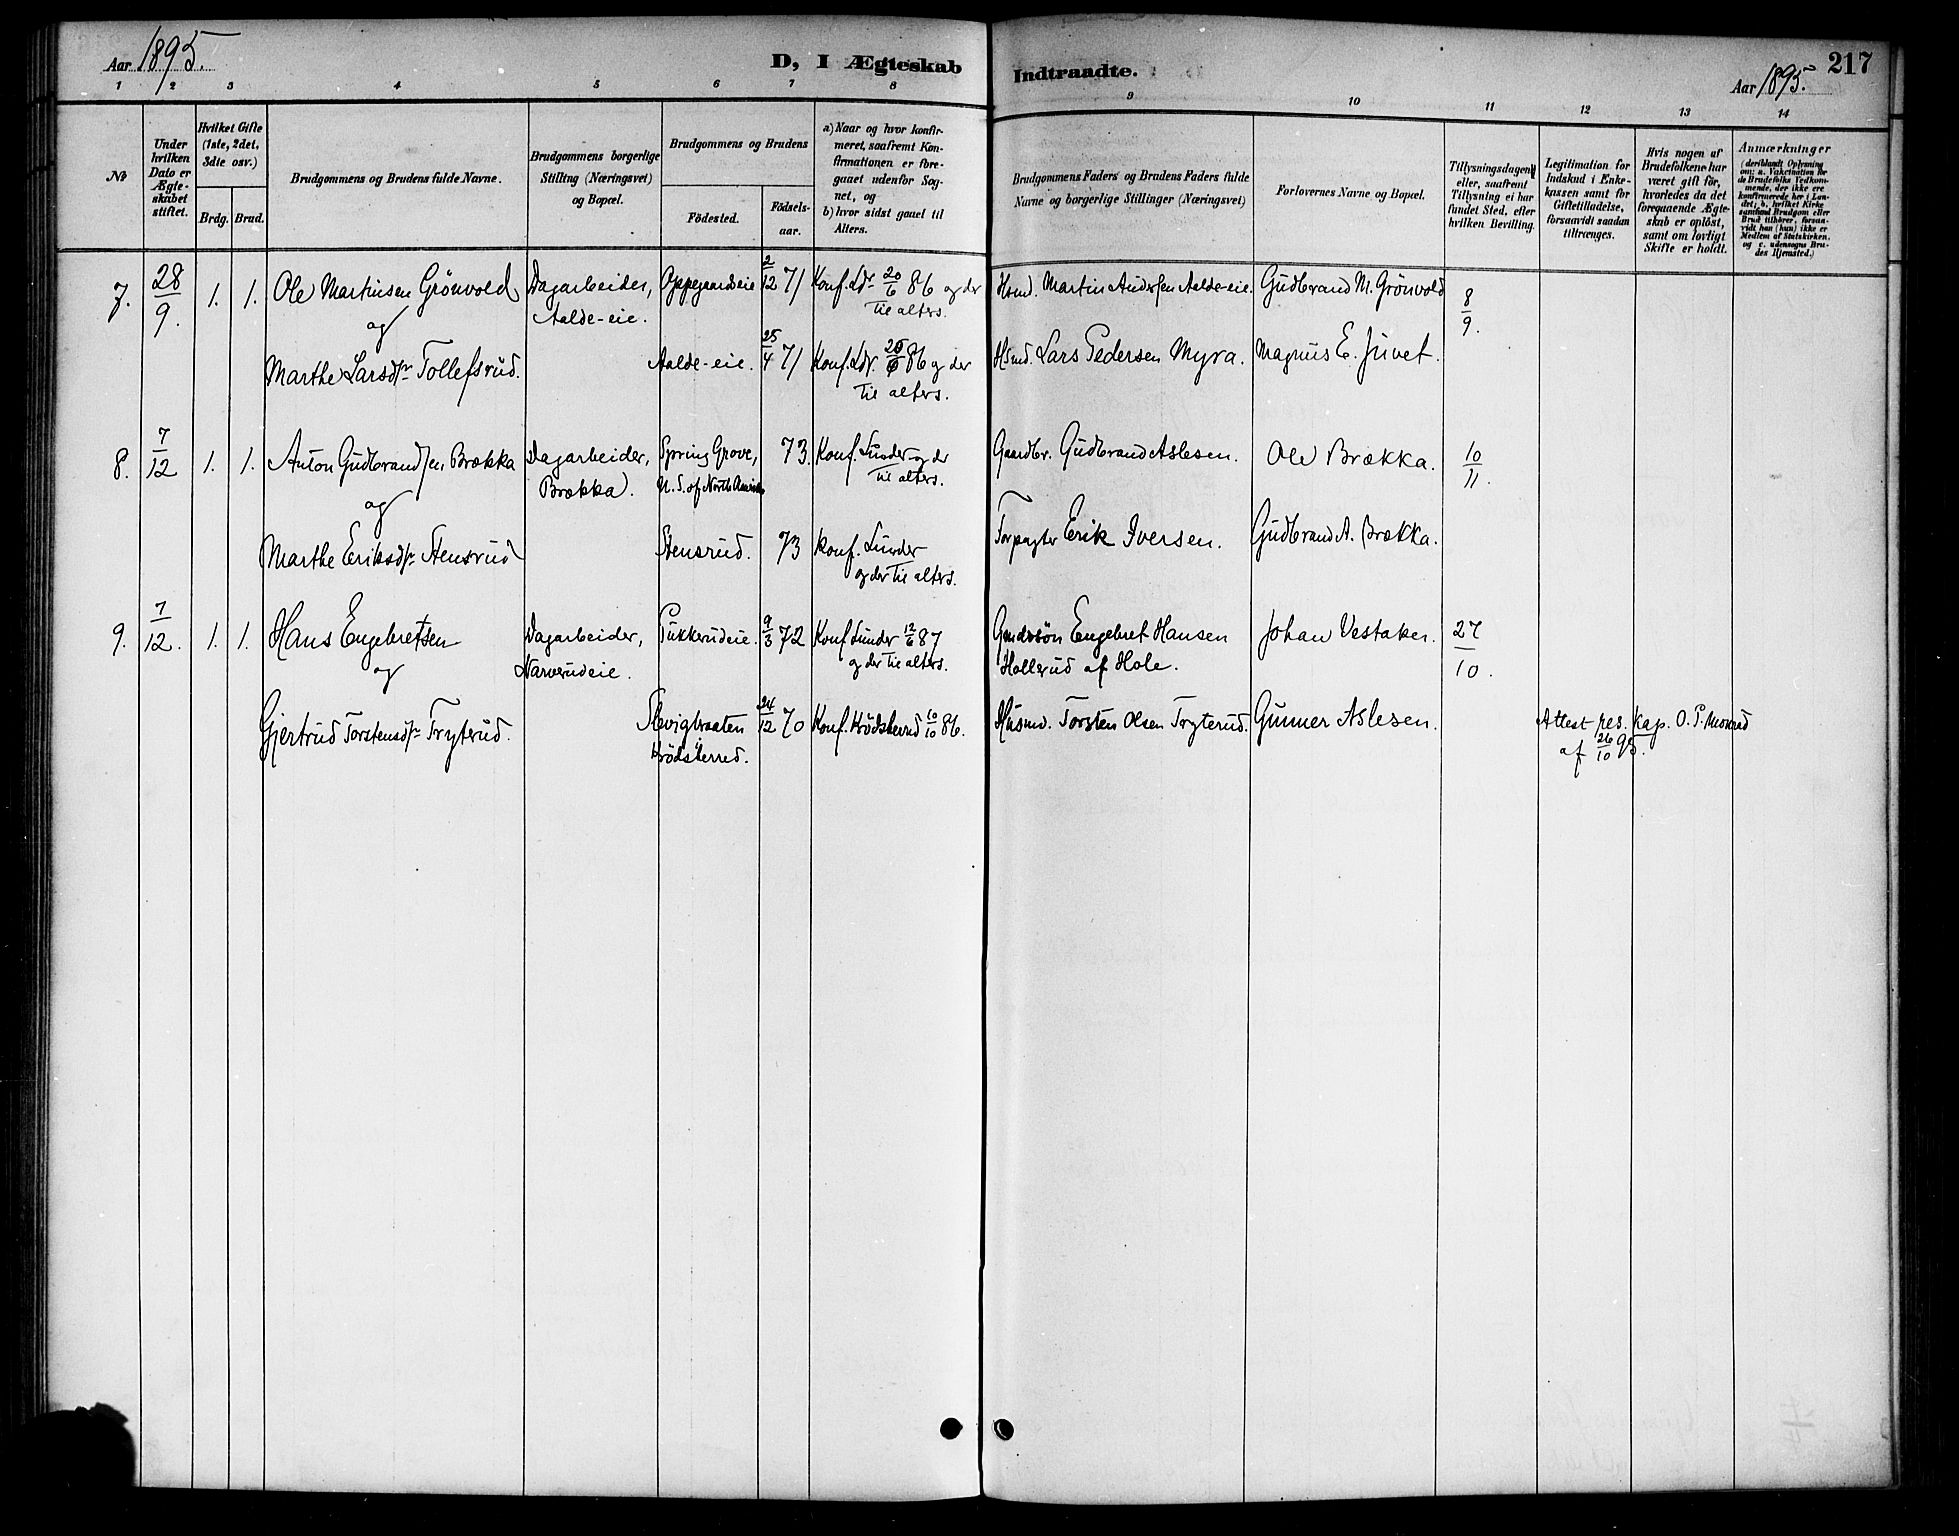 Aar 1895.
D, I Ægteskab
Indtraadte.
217
Aar 1895.
1 2 3 4 5 6 7 8 9 10 11 12 13 14
No
Under hvilken Dato er Ægteskabet stiftet.
Hvilket Gifte (1ste, 2det, 3die osv.)
Brdg. Brud.
Brudgommens og Brudens fulde Navne.
Brudgommens borgerlige Stilling (Næringsvei) og Bopæl.
Brudgommens og Brudens
Födested.
Födselsaar.
a) Naar og hvor konfirmeret, saafremt Konfirmationen er foregaaet udenfor Sognet, og
b) hvor sidst gaaet til Alters.
Brudgommens Faders og Brudens Faders fulde Navne og borgerlige Stillinger (Næringsvei)
Forlovernes Navne og Bopæl.
Tillysningsdagen, eller, saafremt Tillysning ei har fundet Sted, efter hvilken Bevilling.
Legitimation for Indskud i Enkekassen samt for Giftetilladelse, forsaavidt saadan tiltrænges.
Hvis nogen af Brudefolkene har været gift för, hvorledes da det foregaaende Ægteskab er oplöst, samt om lovligt Skifte er holdt.
Anmærkninger
(deriblandt Oplysning om: a. Vaccination for de Brudefolks Vedkommende, der ikke ere konfirmerede her i Landet; b. hvilket Kirkesamfund Brudgom eller Brud tilhører, forsaavidt han (hun) ikke er Medlem af Statskirken, og c. udensogns Brudes Hjemsted.)
7. 28/9. 1. 1. Ole Martinsen Grönvold Dagarbeider, Oppegaardseie 2/12 71 Konf. Ldr. 20/6 86 og der Hsmd. Martin Andersen Aalde-eie. Gudbrand M. Grönvold 8/9.
og Aalde-eie. til alters.
Marthe Larsdtr Tollefsrud. Aalde-eie. 25/4 71 Konf. Ldr. 20/6 86 og der Hsmd. Lars Pedersen Myra. Magnus E. Juvet.
til alters.
8. 7/12 1. 1. Anton Gudbrandsen Brækka Dagarbeider, Spring Grove, 73. Konf. Lunder og der Gaardbr. Gudbrand Aslesen. Ole Brækka. 10/11.
og Brækka. U. S. of North Amerika til alters.
Marthe Eriksdtr Stensrud Stensrud. 73 Konf. Lunder Forpagter Erik Iversen. Gudbrand A. Brækka.
og der til alters.
9. 7/12. 1. 1. Hans Engebretsen Dagarbeider, Pukkerudeie. 9/3 72 Konf Lunder 12/6 87 Engebret Hansen Johan Vestaker. 27/10.
og Narverudeie. og der til alters. Hollerud af Hole.
Gjertrud Torstensdtr Tryterud. 24/12 70 Konf. Krödsherred 10/10 86. Husmd. Torsten Olsen Tryterud. Gunner Aslesen. Attest res. kap. O. P. Monrad
Krödsherred. af 26/10 95.